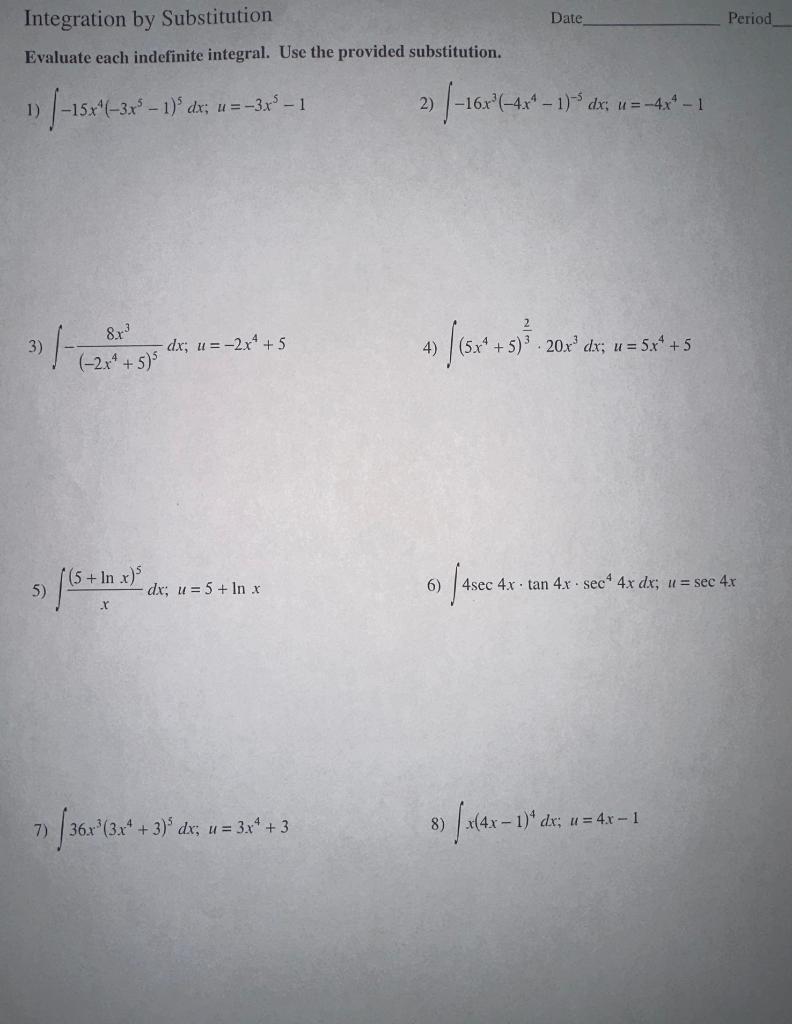 Integration by Substitution Date_______________ Period__
Evaluate each indefinite integral. Use the provided substitution.
1) ∫−15x⁴(−3x⁵ − 1)⁵ dx; u = −3x⁵ − 1
2) ∫−16x³(−4x⁴ − 1)⁻⁵ dx; u = −4x⁴ − 1
3) ∫− 8x³ / (−2x⁴ + 5)⁵ dx; u = −2x⁴ + 5
4) ∫(5x⁴ + 5)^(2/3) · 20x³ dx; u = 5x⁴ + 5
5) ∫(5 + ln x)⁵ / x dx; u = 5 + ln x
6) ∫4sec 4x · tan 4x · sec⁴ 4x dx; u = sec 4x
7) ∫36x³(3x⁴ + 3)⁵ dx; u = 3x⁴ + 3
8) ∫x(4x − 1)⁴ dx; u = 4x − 1